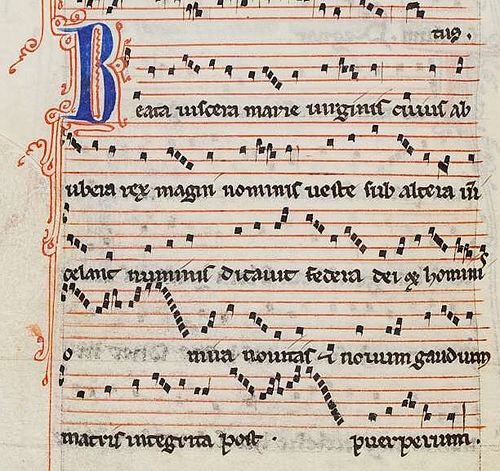 tus.
Beata uiscera marie uirginis cuius ab
ubera rex magni nominis ueste sub altera uī
celans numinis dictauit federa dei & hominis
o mira nouitas & nouum gaudium
matris integrita post . puerperium .